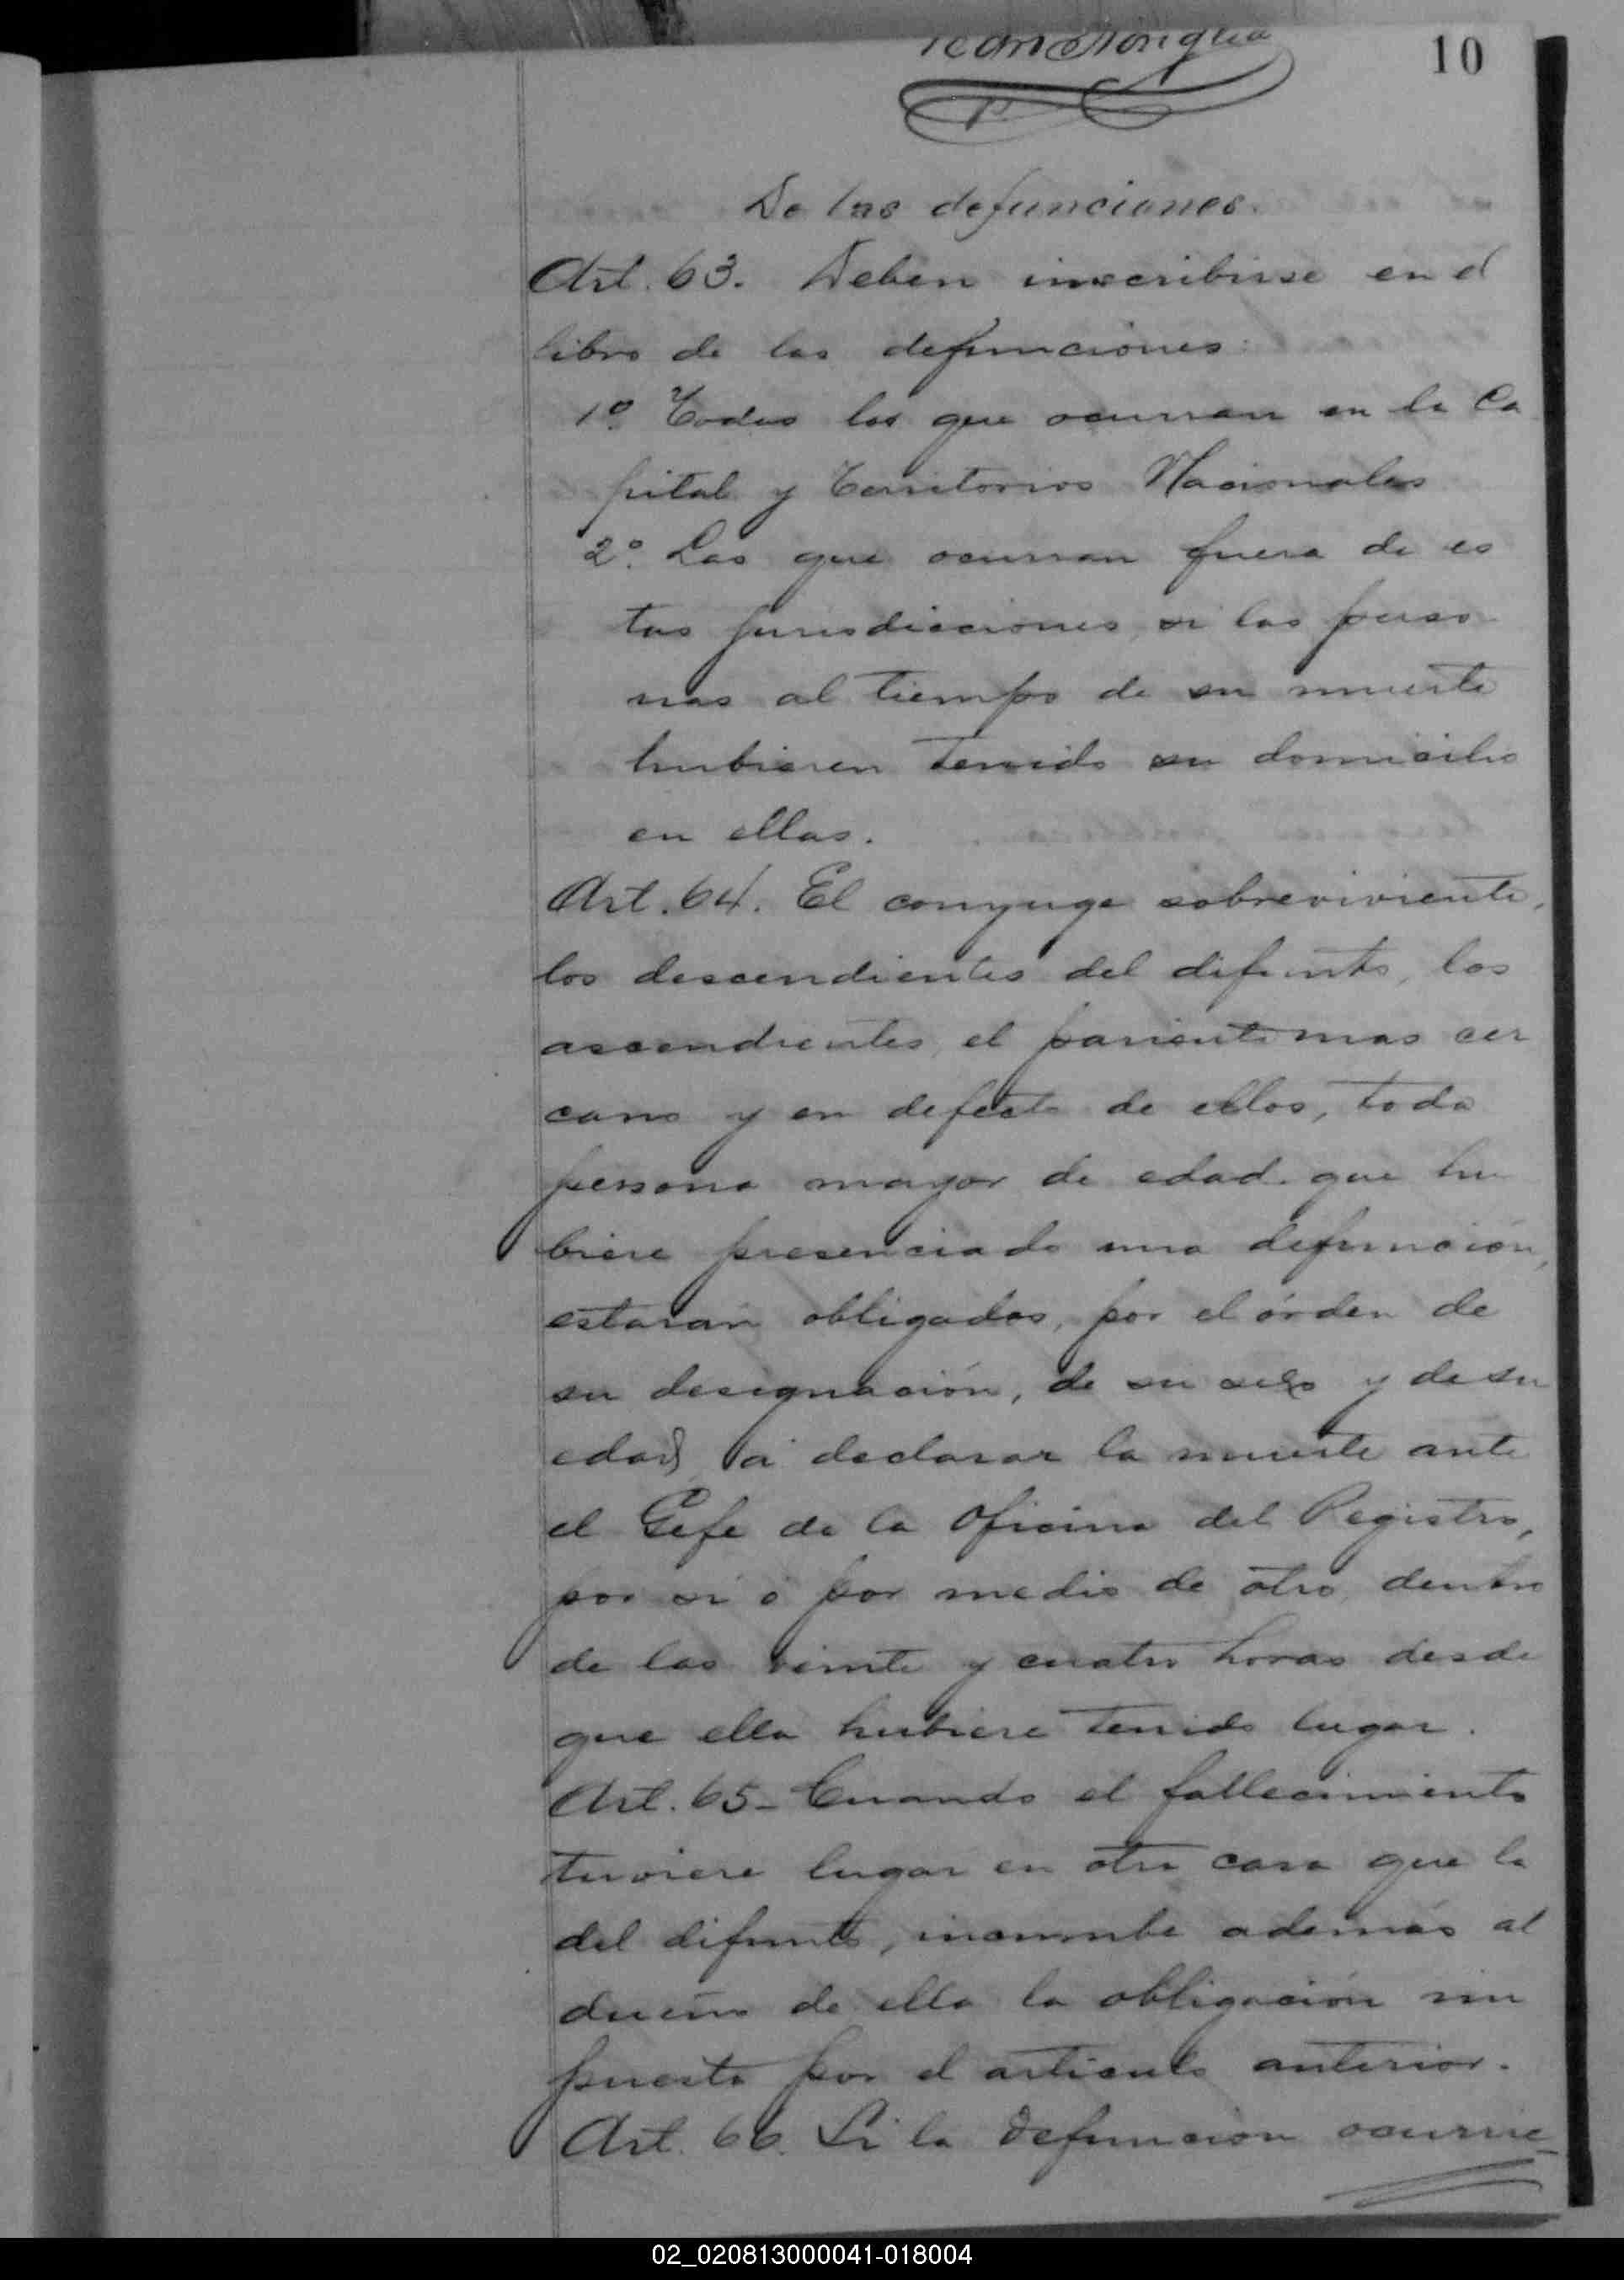 10
De las defunciones.
Art. 63. Deben inscribirse en el
libro de las defunciones:
1º Todas las que ocurran en la Ca
pital y Territorios Nacionales
2º. Las que ocurran fuera de es
tas jurisdicciones, si las perso
nas al tiempo de su muerte
hubieren tenido su domicilio
en ellas.
Art. 64. El conyuge sobreviviente,
los descendientes del difunto, los
ascendientes, el pariente mas cer
cano y en defecto de ellos, toda
persona mayor de edad que hu
biere presenciado una defunción,
estarán obligados, por el órden de
su designación, de su sexo y de su
edad, á declarar la muerte ante
el Gefe de la Oficina del Registro,
por si ó por medio de otro, dentro
de las veinte y cuatro horas desde
que ella hubiere tenido lugar.
Art. 65_ Cuando el fallecimiento
tuviere lugar en otra casa que la
del difunto, incumbe además al
dueño de ella la obligación im
puesta por el articulo anterior.
Art. 66. Si la defuncion ocurrie_
02_020813000041-018004